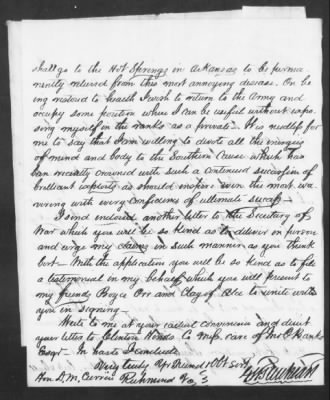 shall go to the Hot Springs in Arkansas to be perma
nently relieved from this most annoying disease. On be
ing restored to health I wish to return to the Army and
occupy some position where I can be useful without expo
sing myself in the ranks as a private - It is needless for
me to say that I am willing to devote all the energies
of mind and body to the Southern Cause which has
been recently crowned with such a continued succession of
brilliant as should inspire even the most wa
vering with every confidence of ultimate success -
I send enclosed another letter to the Secretary of
War which you will be so kind as to deliver in person
and urge my claims in such manner as you think
best - With the application you will be so kind as to file
a testimonial in my behalf which you will present to
my friends Boyce Orr and Clay of Ala to unite with
you in signing -
Write to me at your earliest convenience and direct
your letter to Clinton Hinds Co Miss. care of
Esqr - In haste I conclude
Very truly Yr friend & Obt Servt
Hon. D. M. Currin Richmond Va